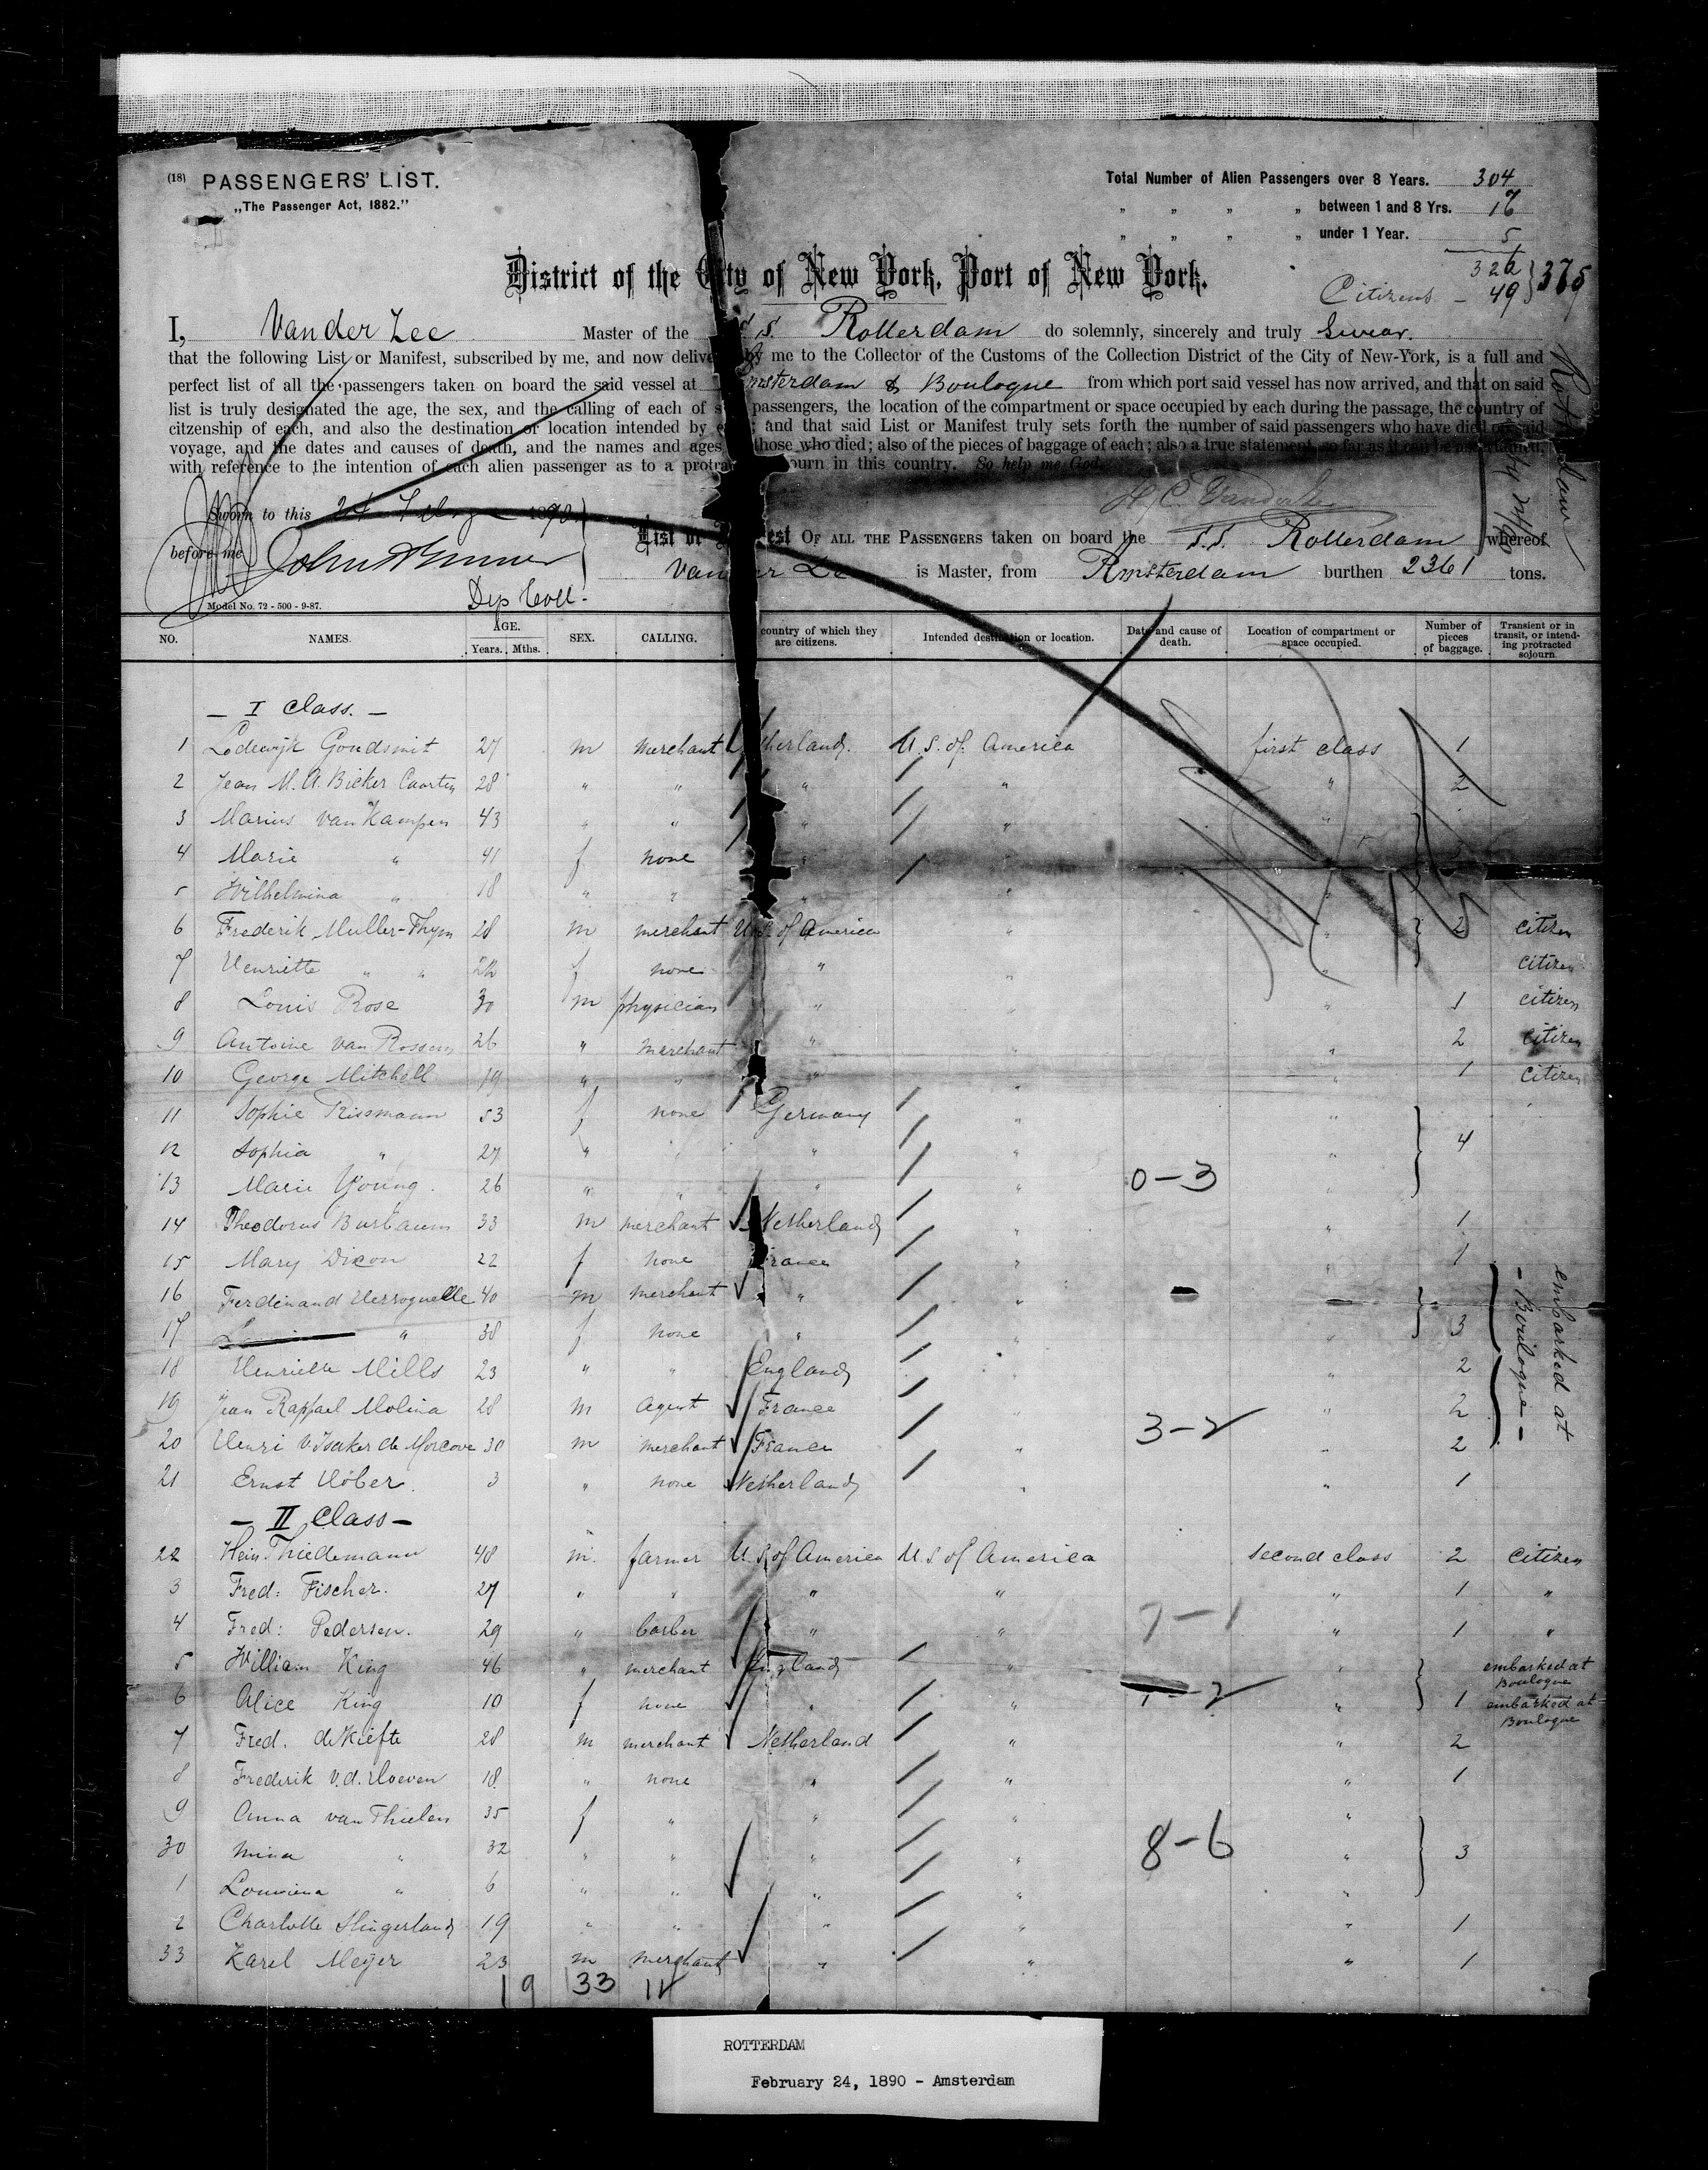 (18) PASSENGERS' LIST.
„The Passenger Act, 1882."
Total Number of Alien Passengers over 8 Years. 304
„ „ „ „ between 1 and 8 Yrs. 17
„ „ „ „ under 1 Year. 5
326
Citizens - 49 } 375
District of the City of New York, Port of New York.
I, Vander Zee Master of the S. S. Rotterdam do solemnly, sincerely and truly swear.
that the following List or Manifest, subscribed by me, and now delive by me to the Collector of the Customs of the Collection District of the City of New-York, is a full and
perfect list of all the passengers taken on board the said vessel at Amsterdam & Boulogne from which port said vessel has now arrived, and that on said
list is truly designated the age, the sex, and the calling of each of s passengers, the location of the compartment or space occupied by each during the passage, the country of
citzenship of each, and also the destination or location intended by e ; and that said List or Manifest truly sets forth the number of said passengers who have died on said
voyage, and the dates and causes of death, and the names and ages those who died; also of the pieces of baggage of each; also a true statement, so far as it can be ascertained,
with reference to the intention of each alien passenger as to a protra ourn in this country. So help me God.
H. C. Vander Zee
Sworn to this 24 1890
before me
Dep Coll.
List or M est OF ALL THE PASSENGERS taken on board the S.S. Rotterdam whereof
Vander Zee is Master, from Amsterdam burthen 2361 tons.
Rotterdam
Model No. 72 - 500 - 9-87.
NO. NAMES. AGE. Years. Mths. SEX. CALLING. country of which they are citizens. Intended destination or location. Date and cause of death. Location of compartment or space occupied. Number of pieces of baggage. Transient or in transit, or intending protracted sojourn
— I Class. —
1 Lodewijk Goudsmit 27 m merchant Netherlands. U. S. of America first class 1
2 Jean M. A. Bicker Caarten 28 " " " " " 2
3 Marius van Kampen 43 " " " " "
4 Marie " 41 f none " "
5 Wilhelmina " 18 " " " " "
6 Frederik Muller-Thym 28 m merchant U.S. of America " " 2 citizen
7 Henriette " " 22 f none " " " citizen
8 Louis Rose 30 m physician " " " 1 citizen
9 Antoine van Rossem 26 " merchant " " " 2 citizen
10 George Mitchell 19 " " " " " 1 citizen
11 Sophie Rissmann 53 f none Germany " "
12 Sophia " 27 " " " " " 4
13 Marie Young 26 " " " " 0-3 "
14 Theodorus Busbaum 33 m merchant Netherlands " " 1
15 Mary Dixon 22 f none France " " 1
16 Ferdinand Herroguelle 40 m merchant " "
17 " 38 f none " " " 3
18 Henriette Mills 23 " " England " 2
19 Jean Raphael Molina 28 m Agent France " " 2
20 Henri v. Isaker de Morcove 30 m merchant France " 3-2 " 2
embarked at
- Boulogne -
21 Ernst Höber 3 " none Netherlands " " 1
— II Class —
22 Hein Thiedemann 48 m. farmer U. S. of America U. S of America second class 2 citizen
3 Fred: Fischer. 27 " " " " " 1 "
4 Fred: Pedersen. 29 " barber " " 7-1 " 1 "
5 William King 46 " merchant England " " embarked at Boulogne
6 Alice King 10 f none " " -2 " 1 embarked at Boulogne
7 Fred. de Kiefte 28 m merchant Netherland " " 2
8 Frederik v.d. Hoeven 18 " none " " " 1
9 Anna van Thielen 35 f " " "
30 Mina " 32 " " " " 8-6 " 3
1 Louisiena " 6 " " " " "
2 Charlotte Slingerland 19 " " " " " 1
33 Karel Meijer 23 m merchant " " " 1
19 33 11
ROTTERDAM
February 24, 1890 - Amsterdam